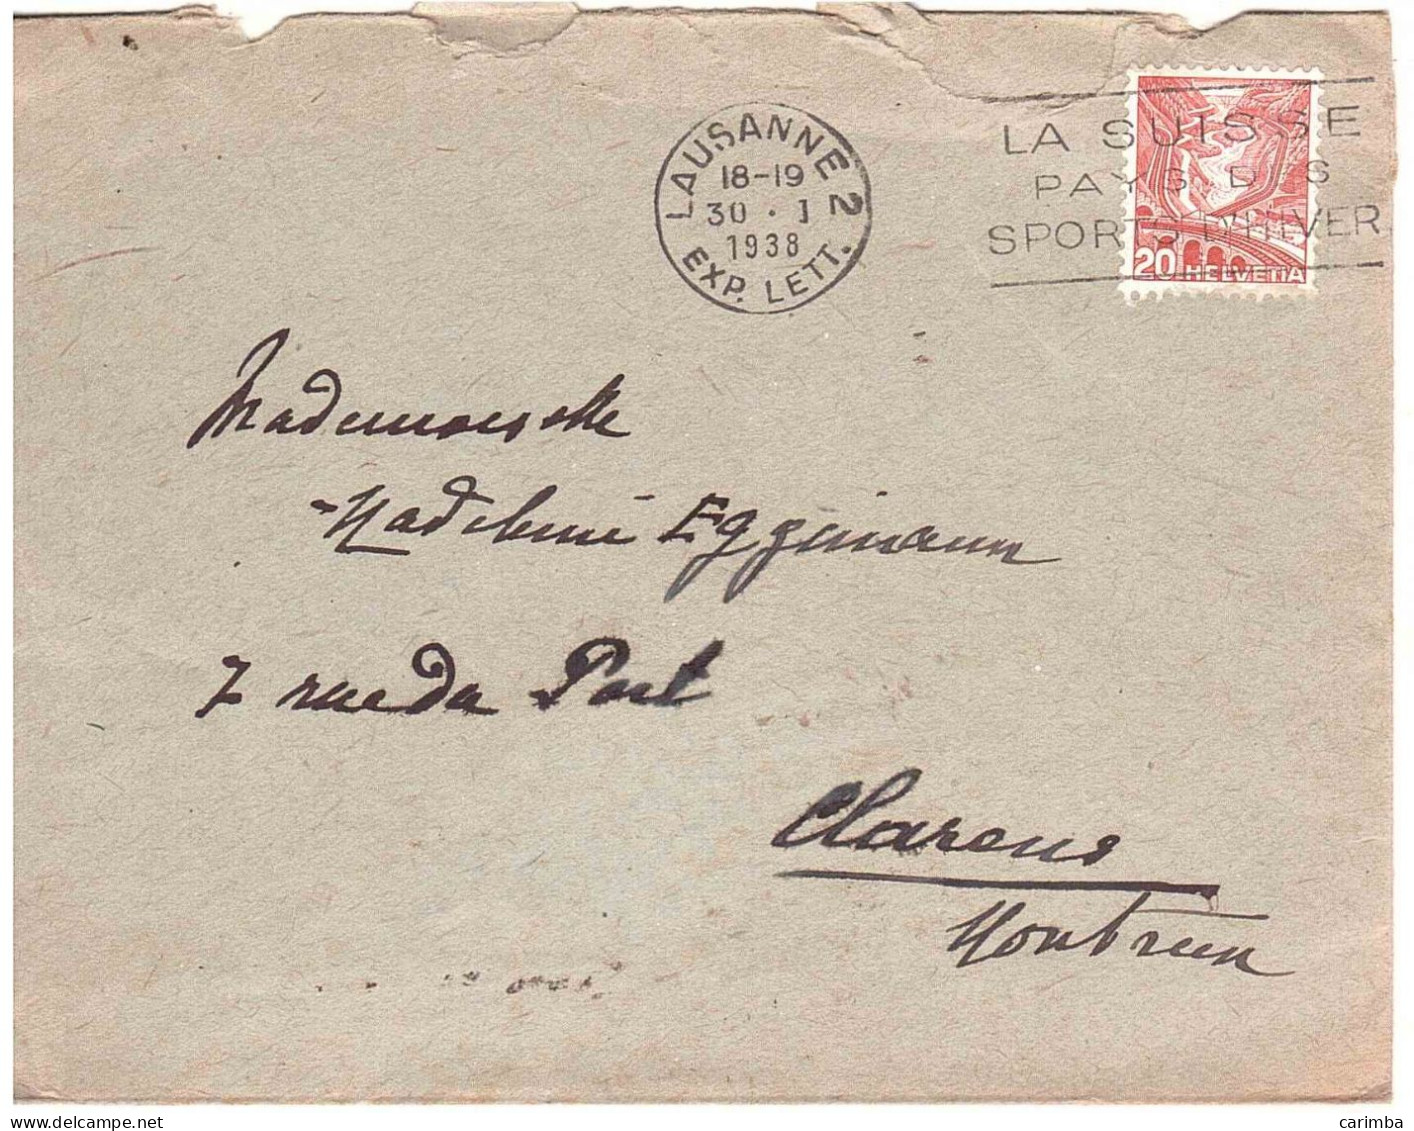 LAUSANNE 2
18-19
30 · I
1938
EXP. LETT.
LA SUISSE
PAYS DES
SPORTS D'HIVER
20 HELVETIA
Mademoiselle
Madeleine Eggimann
7 rue du Port
Clarens
Montreux
carimba